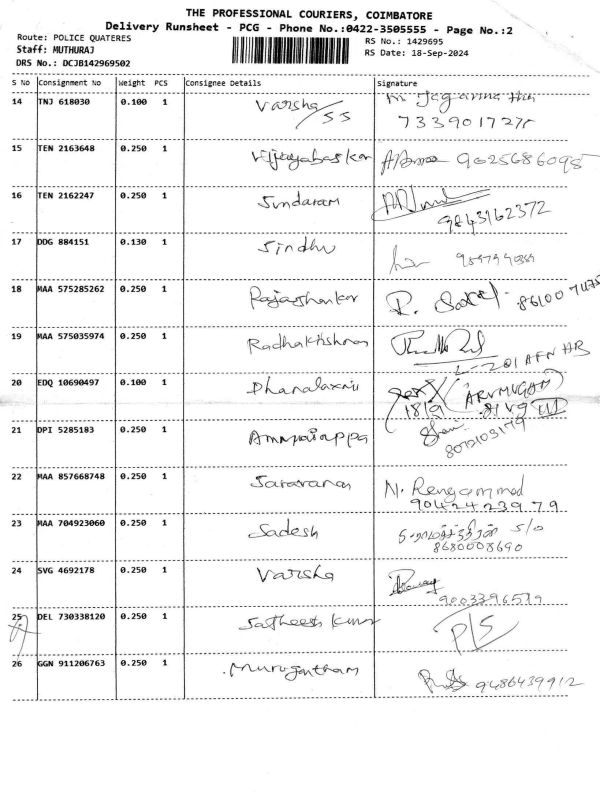 THE PROFESSIONAL COURIERS, COIMBATORE
Delivery Runsheet - PCG - Phone No.:0422-3505555 - Page No.:2
Route: POLICE QUATERES
RS No.: 1429695
Staff: MUTHURAJ
RS Date: 18-Sep-2024
DRS No.: DCJB142969502
S No Consignment No Weight PCS Consignee Details Signature
14 TNJ 618030 0.100 1 Varsha
/SS
15 TEN 2163648 0.250 1 Vijayabaskar 9025686095
16 TEN 2162247 0.250 1 Sundaram
9843162372
17 DDG 884151 0.130 1 Sindhu
18 MAA 575285262 0.250 1 Rajashankar
19 MAA 575035974 0.250 1 Radhakrishnan
L-201 AFN HB
20 EDQ 10690497 0.100 1 Dhanalaxmi (ARUMUGAM)
18/9
21 DPI 5285183 0.250 1
22 MAA 857668748 0.250 1 Saravanan N. Rengammad
9042423979
23 MAA 704923060 0.250 1 Sadesh S/O
8680008690
24 SVG 4692178 0.250 1 Varsha
9003396519
25 DEL 730338120 0.250 1 Satheesh Kumar P/S
26 GGN 911206763 0.250 1 Muruganatham 9486439912